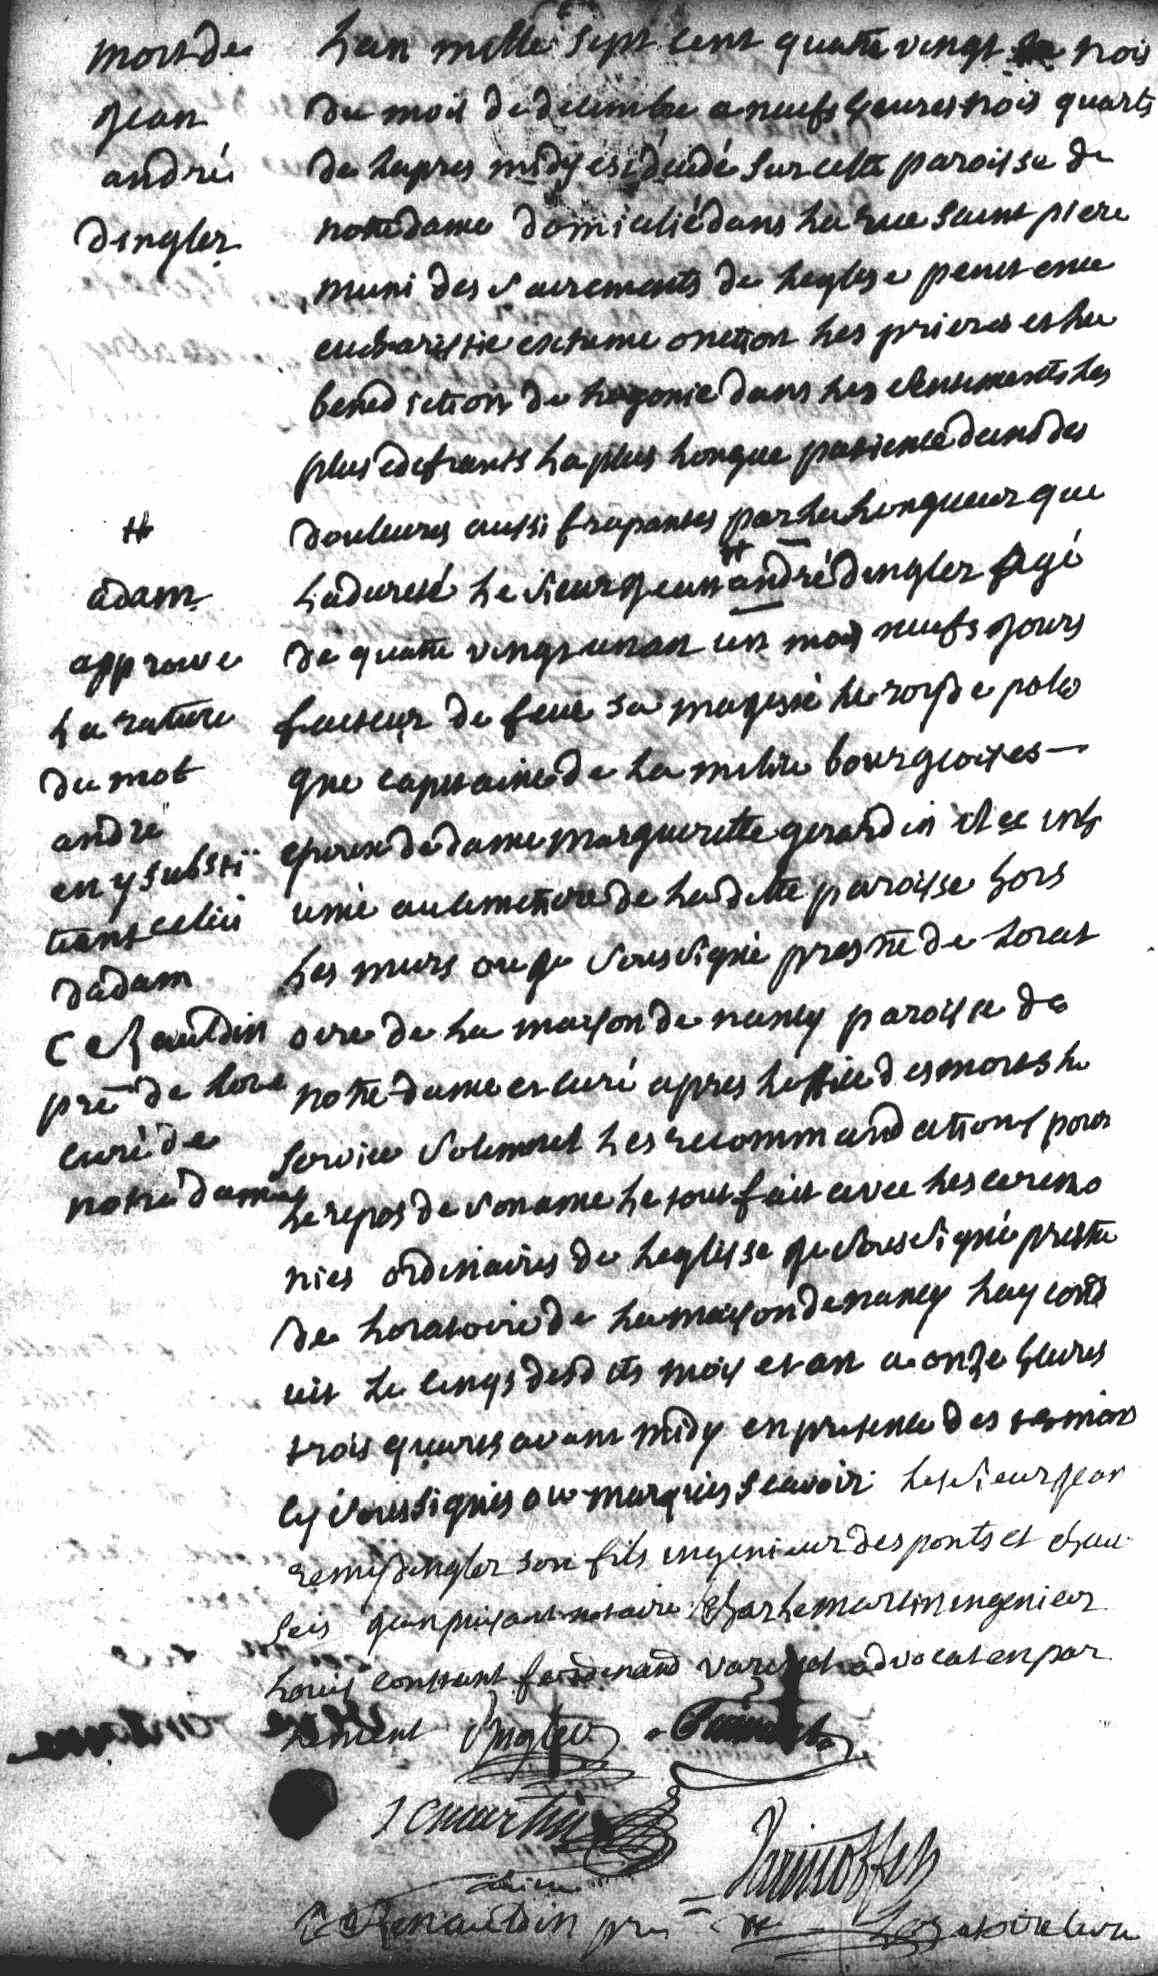 mort de
jean
andré
dingler
#
adam
approuve
la rature
du mot
andre
en y substi
tuant celui
dadam
C Renauldin
pre de lora
curé de
notre dame
Lan mille sept cent quatre vingt le trois
du mois de decembre a neufs heures trois quarts
de lapres midy est décédé sur cette paroisse de
notre dame domicilié dans la rue saint piere
muni des sacrements de leglise penitence
eucharistie extreme onction les prieres et la
benediction de lagonie dans les sentiments les
plus edifiants la plus longue patience dans des
douleures aussi frapantes par la longueur que
la dureté le sieur jean andré dingler agé
de quatre vingt un an un mois neufs jours
facteur de feue sa majesté le roy de polo
gne capitaine de la milice bourgeoises
epoux de dame marguerite gerardin il a été inh
umé au cimetiere de la ditte paroisse hors
les murs ou je soussigné prestre de lorat
oire de la maison de nancy paroisse de
notre dame et curé apres loffice des morts le
service solemnel les recommandations pour
le repos de son ame le tout fait avec les ceremo
nies ordinaires de leglise je soussigné prestre
de loratoire de la maison de nancy lay cond
uit le cinq desdits mois et an a onze heures
trois quarts avant midy en presence des temoins
cy soussignés ou marqués scavoir le sieur jean
remy dingler son fils ingenieur des ponts et chau
sées jean notaire Charle martin ingenieur
louis constant ferdinand advocat en par
lement Dingler
J C martin
C Renauldin pre de Loratoire Curé